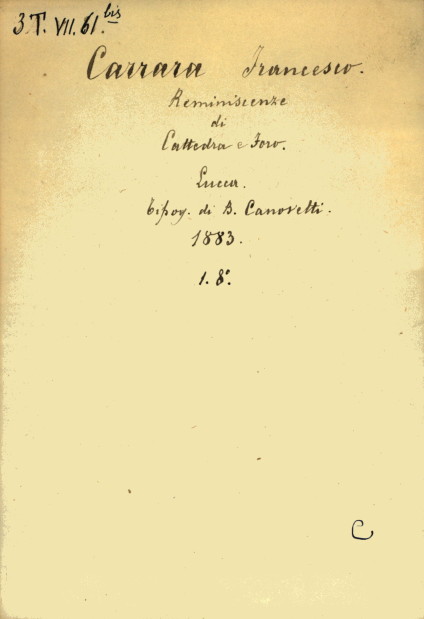 3.T. VII. 61. bis
Carrara Francesco.
Reminiscenze
di
Cattedra e Foro.
Lucca.
tipog. di B. Canovetti.
1883.
1. 8º.
C